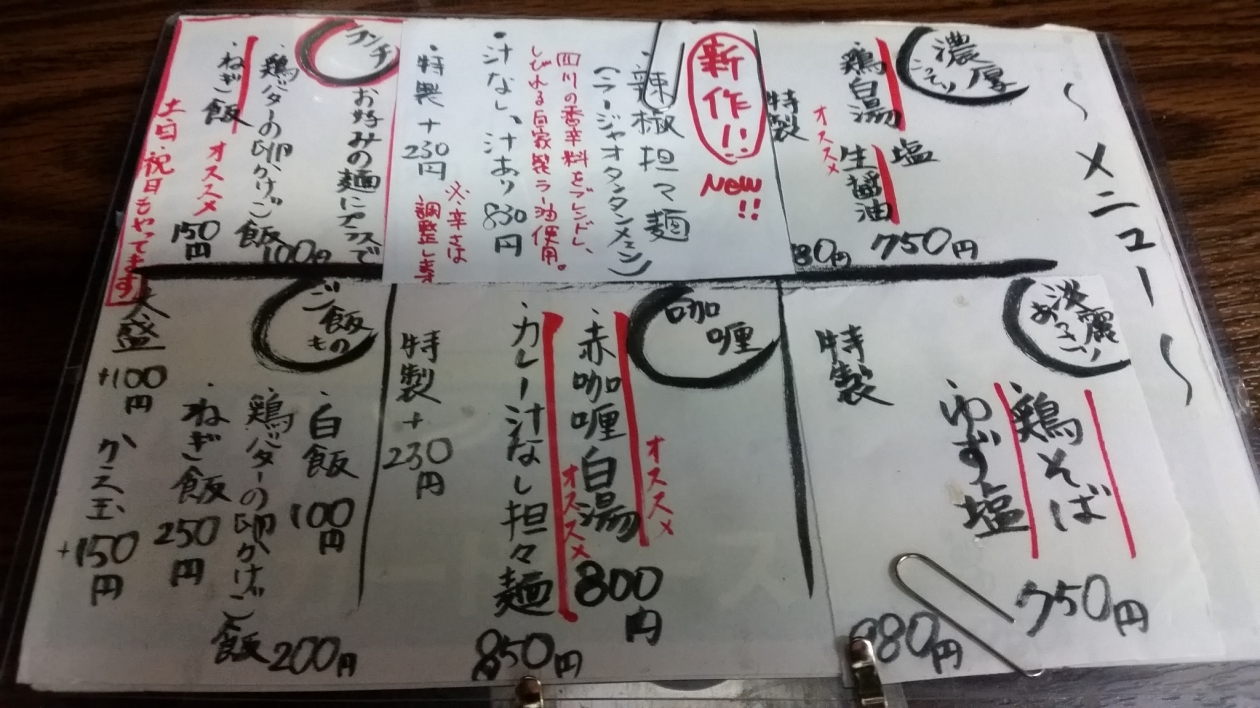 〜メニュー〜
濃厚
こってり
鶏白湯
塩
生醤油
オススメ
750円
特製
新作!!
NEW!!
辣椒担々麺
(ラージャオタンタンメン)
四川の香辛料をブレンドし、
しびれる自家製ラー油使用。
・汁なし、汁あり 830円
・特製+230円
※辛さは
調整します
ランチ
お好みの麺にプラスで
・鶏バターの卵かけご飯 100円
・ねぎ飯 150円
オススメ
土日、祝日もやってます
淡麗
あっさり
・鶏そば
・ゆず塩
750円
特製
980円
咖喱
・赤咖喱白湯 800円
オススメ
・カレー汁なし担々麺 850円
オススメ
特製+230円
ご飯もの
・白飯 100円
・鶏バターの卵かけご飯 200円
・ねぎ飯 250円
大盛 +100円
かえ玉 +150円